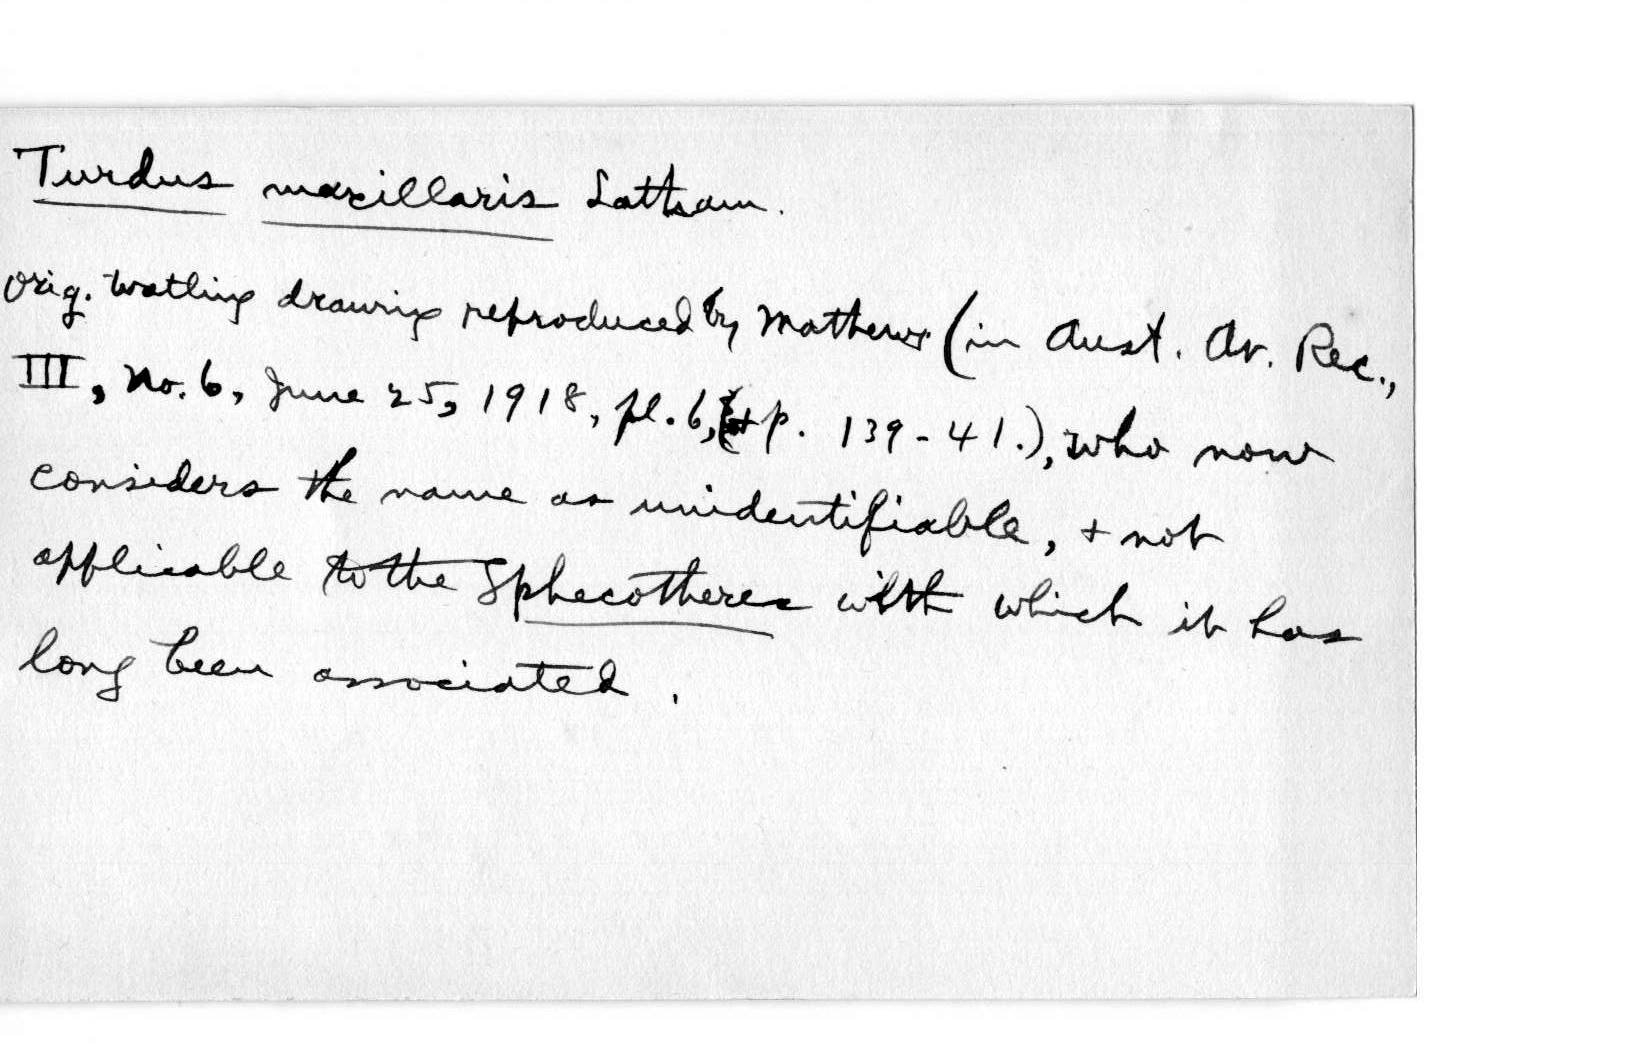 Turdus maxillaris Latham.
Orig. Watling drawing reproduced by Mathews (in Aust. Av. Rec.,
III, No. 6, June 25, 1918, pl. 6, + p. 139-41.), who now
considers the name as unidentifiable, + not
applicable to the Sphecotheres with which it has
long been associated.